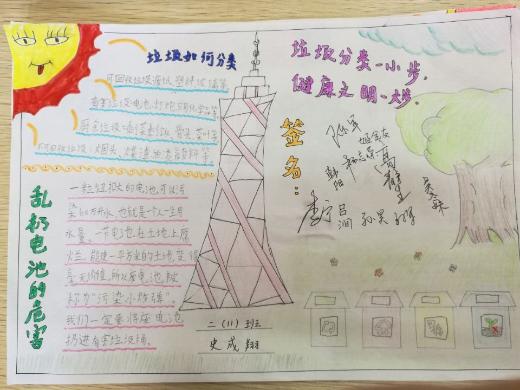 垃圾如何分类
可回收垃圾:废纸 塑料 玻璃等
有害垃圾:电池、灯泡、消化学品等
厨余垃圾:剩菜剩饭 骨头 菜叶等
不可回收垃圾:烟头、煤渣、油漆颜料等
垃圾分类一小步,
健康文明一大步。
签名:
陈军
孙昊
吕润
乱扔电池的危害
一粒纽扣大的电池可以污
染60万升水,也就是一个人一生用
水量。一节电池在土地上腐
烂,能使一平方米的土地変得
毫无价值,所以废电池被
称为“污染小炸弹”。
我们一定要将废电池
扔进有害垃圾桶。
二(11)班
史成翔